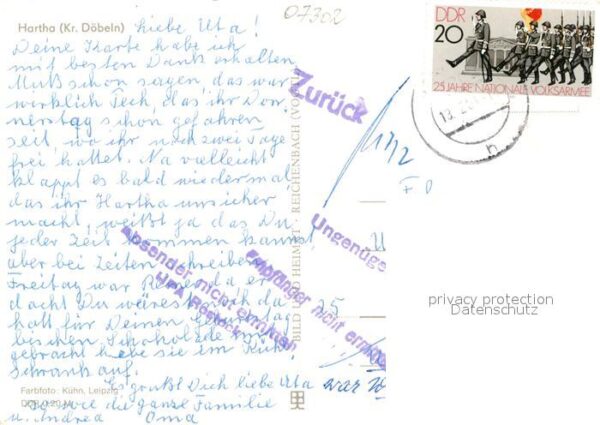 07302
Hartha (Kr. Döbeln)
Liebe Uta!
Deine Karte habe ich
mit besten Dank erhalten.
Muß schon sagen, das war
wirklich Pech, das ihr Don-
nerstag schon gefahren
seit, wo ihr noch zwei Tage
frei hattet. Na vielleicht
klappt es bald wiedermal
das ihr Hartha unsicher
macht, weißt ja das Du
jeder Zeit kommen kannst
aber bei Zeiten schreiben.
Freitag war da er
dacht Du wärest noch da
halt für Deinen Geburtstag
bischen Schokolade mit
gebracht hebe sie im Kühl
Schrank auf.
Es grüßt Dich liebe Uta
die ganze Familie
u. Andrea Oma
Farbfoto: Kühn, Leipzig
BILD UND HEIMAT · REICHENBACH (VOGTL)
Zurück
Absender nicht ermittelt
HPA Rostock
Empfänger nicht ermittelt
Ungenüge
DDR
20
25 JAHRE NATIONALE VOLKSARMEE
privacy protection
Datenschutz